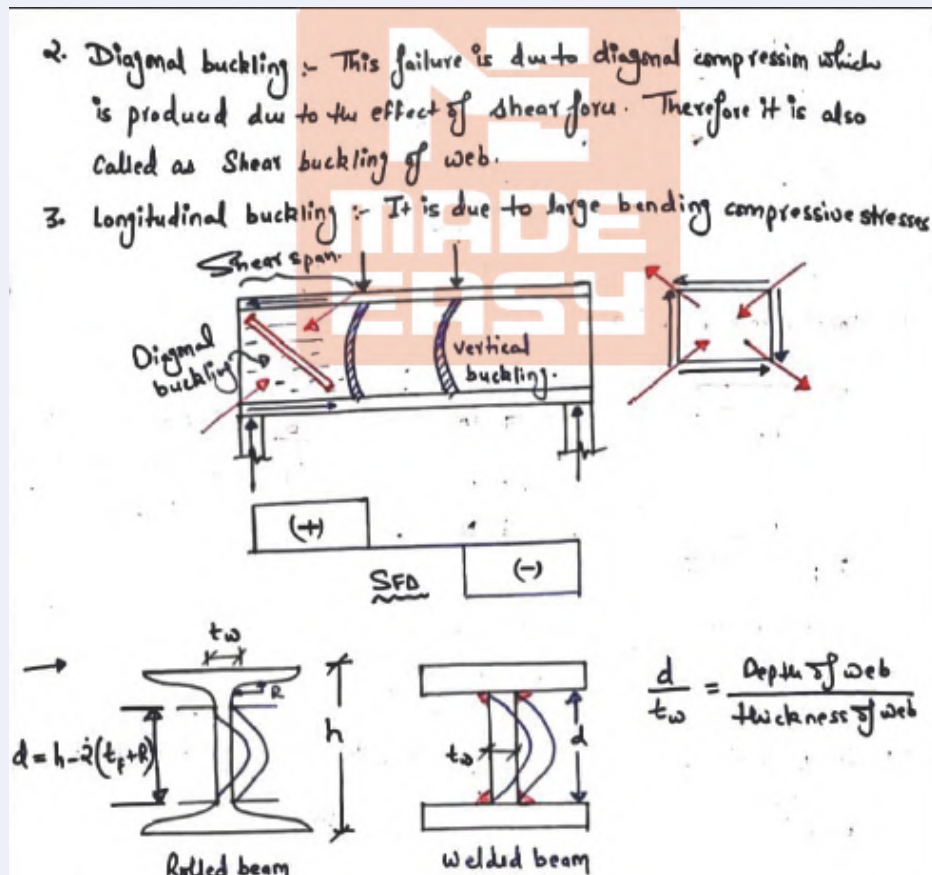 2. Diagonal buckling :- This failure is due to diagonal compression which
is produced due to the effect of shear force. Therefore it is also
called as Shear buckling of web.
3. Longitudinal buckling :- It is due to large bending compressive stresses
MADE
EASY
Shear span.
Diagonal
buckling
vertical
buckling.
(+)
(-)
SFD
tw
R
h
d = h - 2(tf+R)
Rolled beam
tw
d
Welded beam
d/tw = Depth of web/thickness of web